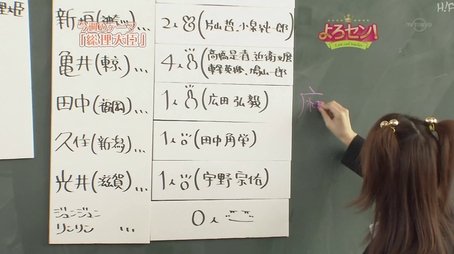 H!P
よろセン!
今週のテーマ
「総理大臣」
新垣(神奈川)… 2人(片山哲、小泉純一郎)
亀井(東京)… 4人(高橋是清 近衛文麿
東条英機、鳩山一郎)
田中(福岡)… 1人(広田弘毅)
久住(新潟)… 1人(田中角栄)
光井(滋賀)… 1人(宇野宗佑)
ジュンジュン
リンリン … 0人
麻